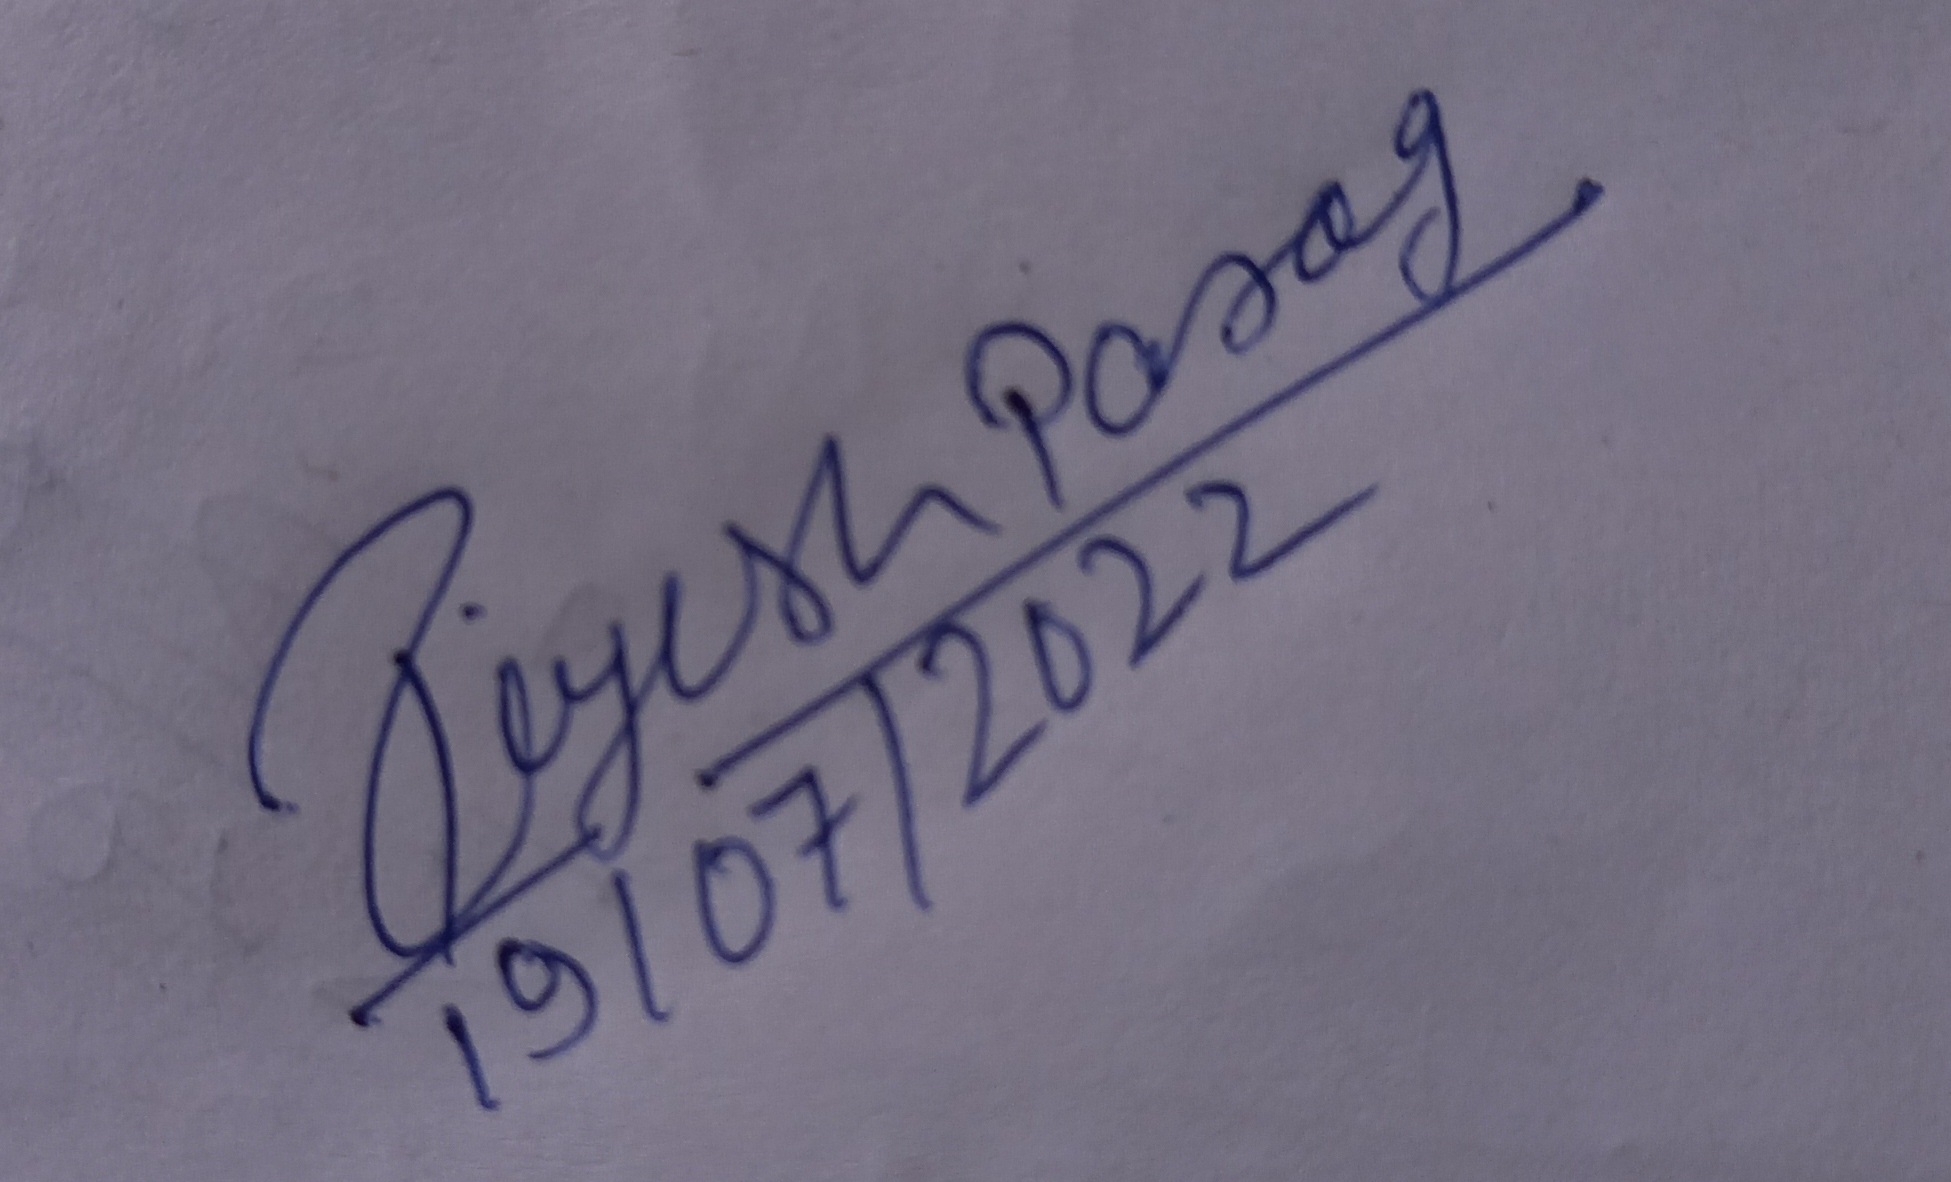 Riyesh Parag
19/07/2022